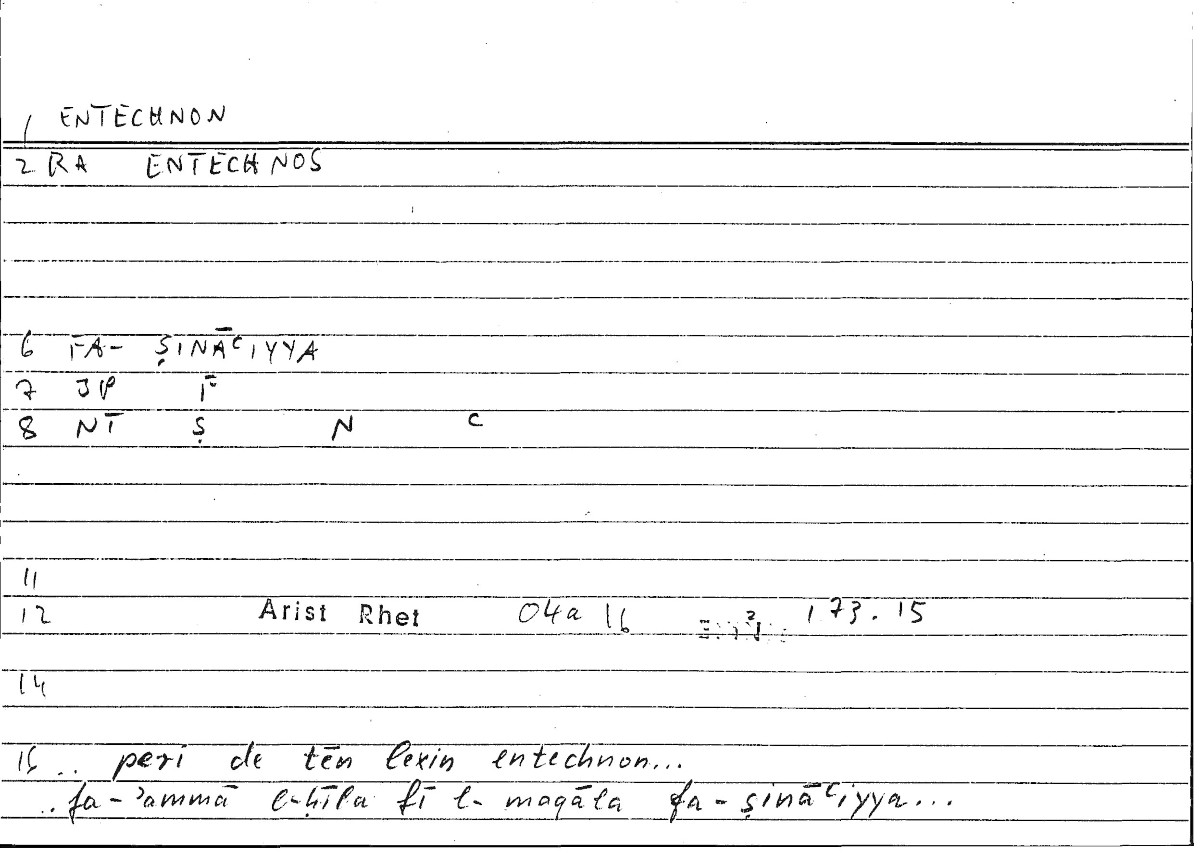 1 ENTECHNON
2 RA ENTECHNOS
6 FA- ṢINĀʿIYYA
7 JP F
8 NT Ṣ N ʿ
11
12 Arist Rhet 04a 16 173.15
14
16 .. peri de tēn lexin entechnon...
.. fa-ʾammā l-ḥīla fī l-maqāla fa-ṣināʿiyya...